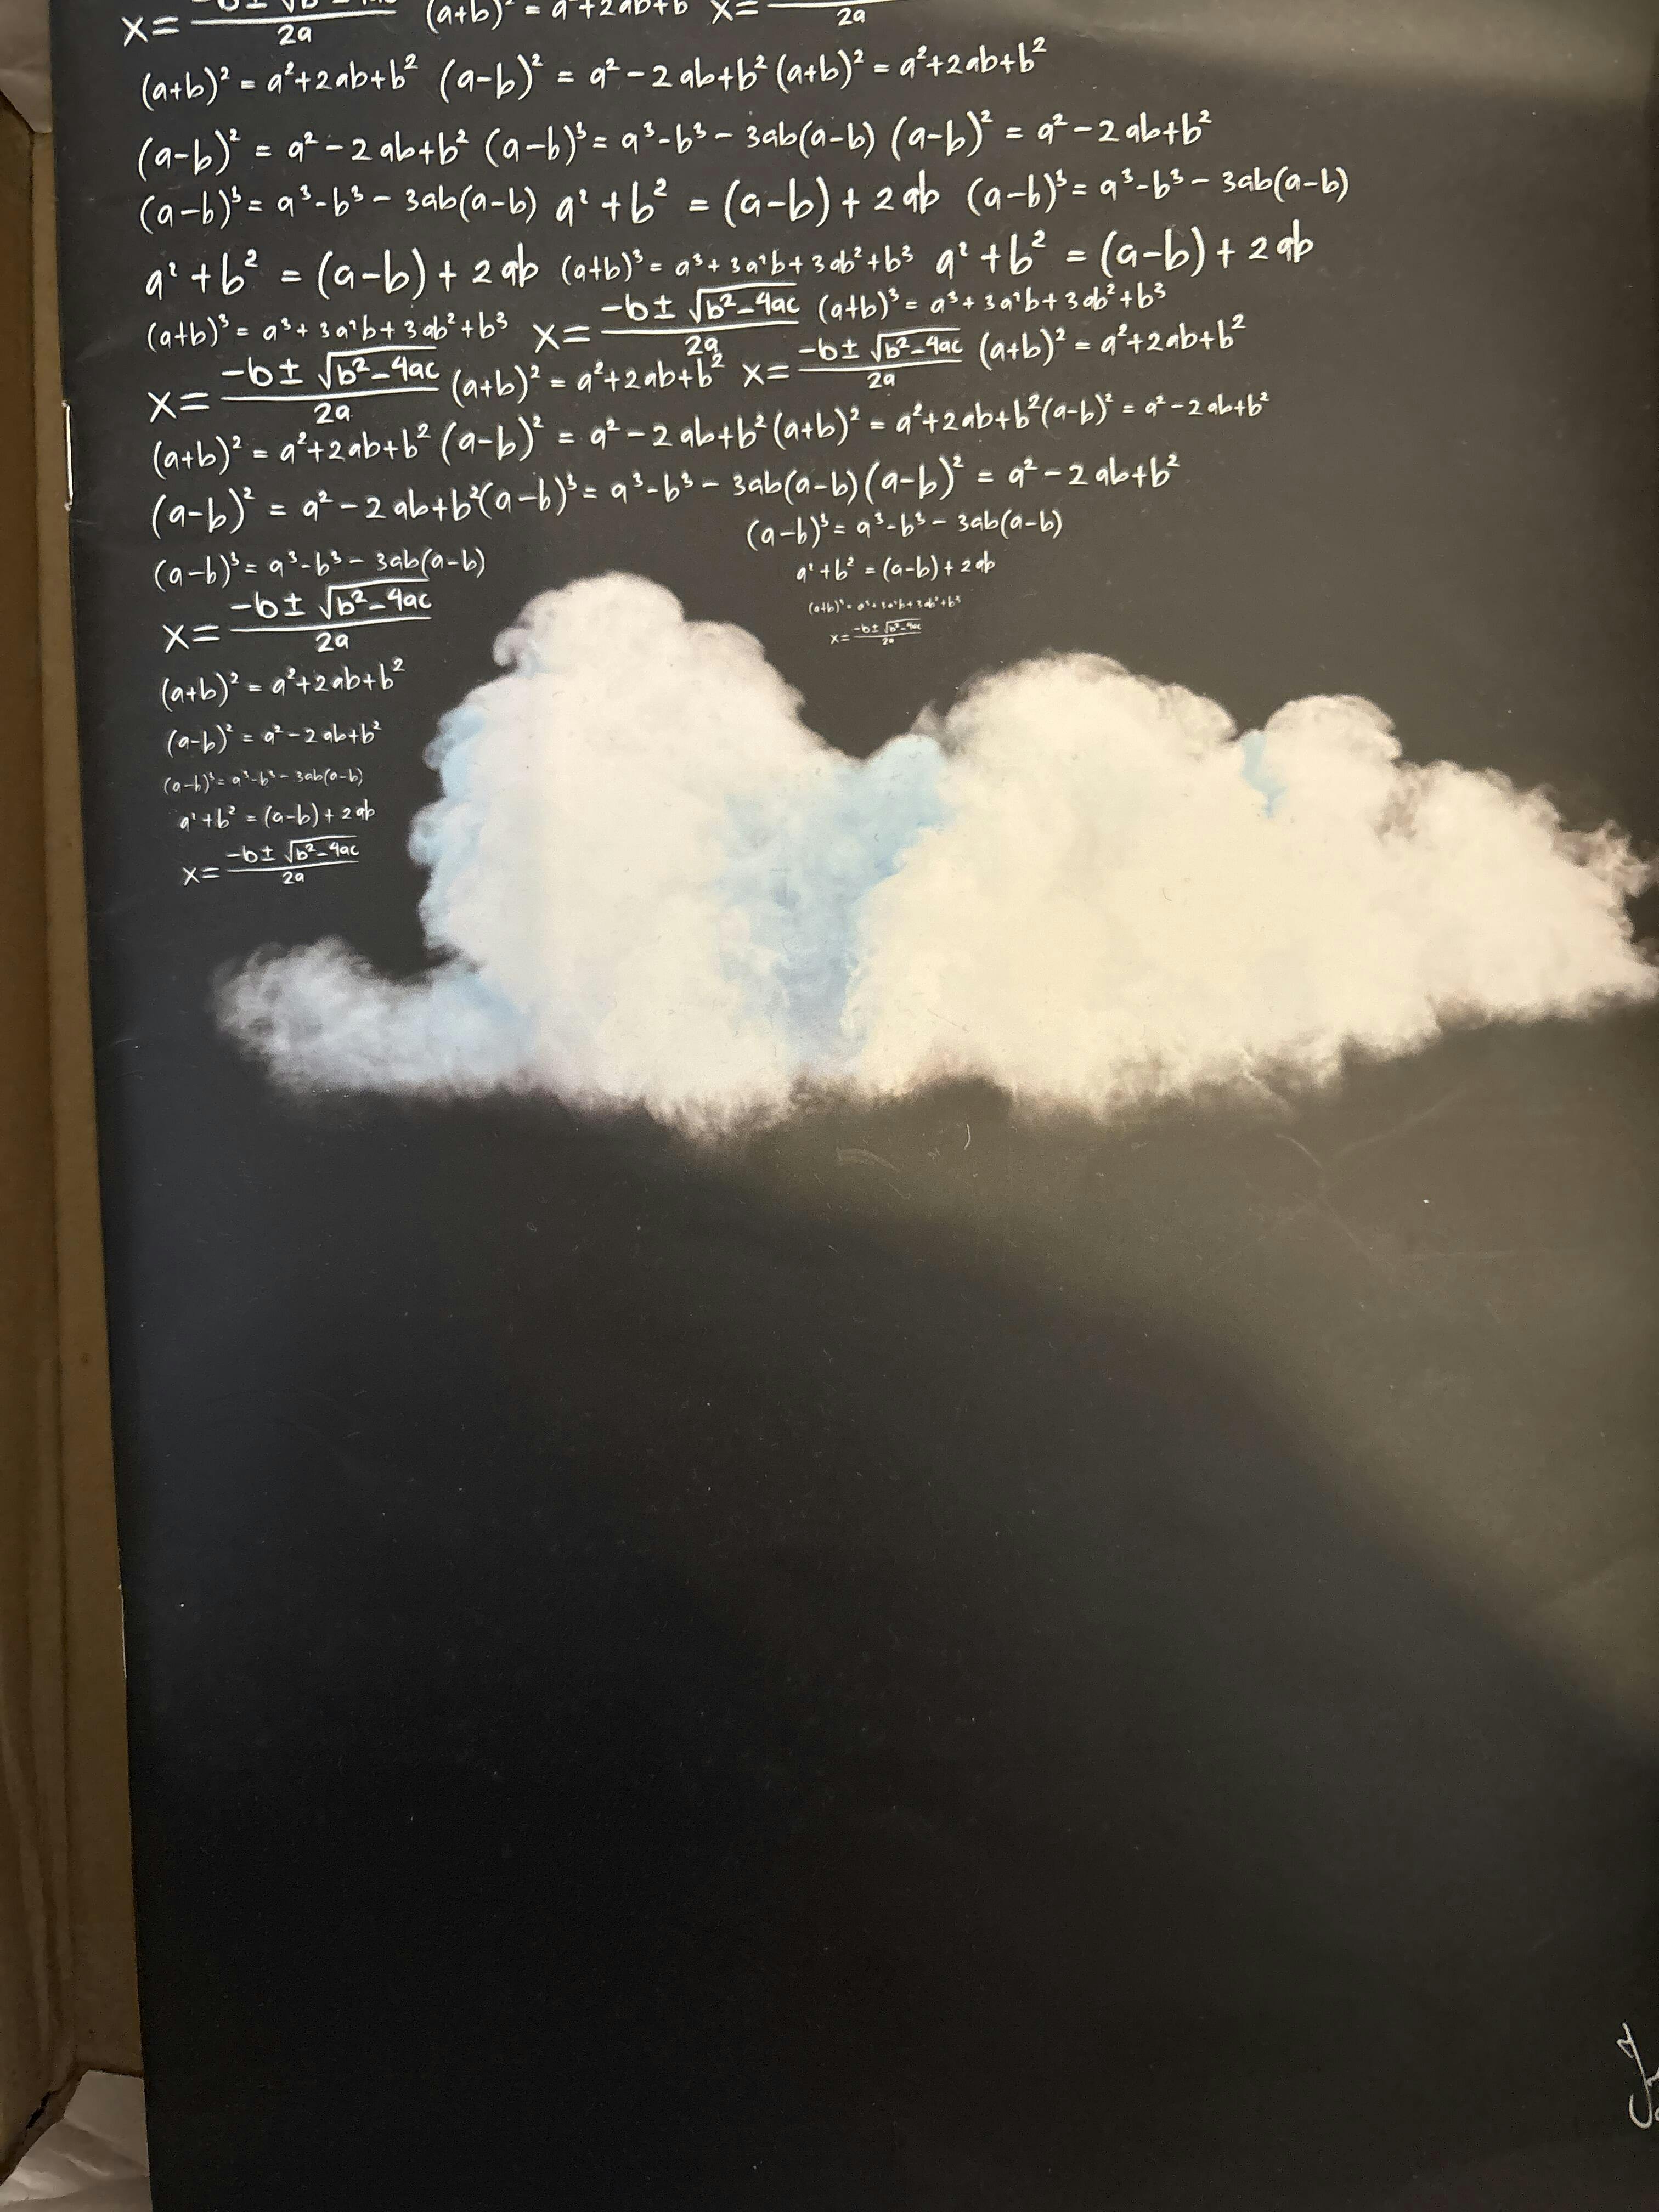 x= -b± √b²-4ac / 2a (a+b)² = a²+2ab+b x= / 2a
(a+b)² = a²+2ab+b² (a-b)² = a²-2ab+b² (a+b)² = a²+2ab+b²
(a-b)² = a²-2ab+b² (a-b)³ = a³-b³-3ab(a-b) (a-b)² = a²-2ab+b²
(a-b)³ = a³-b³-3ab(a-b) a²+b² = (a-b)+2ab (a-b)³ = a³-b³-3ab(a-b)
a²+b² = (a-b)+2ab (a+b)³ = a³+3a²b+3ab²+b³ a²+b² = (a-b)+2ab
(a+b)³ = a³+3a²b+3ab²+b³ x= -b± √b²-4ac / 2a (a+b)³ = a³+3a²b+3ab²+b³
x= -b± √b²-4ac / 2a (a+b)² = a²+2ab+b² x= -b± √b²-4ac / 2a (a+b)² = a²+2ab+b²
(a+b)² = a²+2ab+b² (a-b)² = a²-2ab+b² (a+b)² = a²+2ab+b² (a-b)² = a²-2ab+b²
(a-b)² = a²-2ab+b² (a-b)³ = a³-b³-3ab(a-b) (a-b)² = a²-2ab+b²
(a-b)³ = a³-b³-3ab(a-b)
(a-b)³ = a³-b³-3ab(a-b)
a²+b² = (a-b)+2ab
(a+b)³ = a³+3a²b+3ab²+b³
x= -b± √b²-4ac / 2a
x= -b± √b²-4ac / 2a
(a+b)² = a²+2ab+b²
(a-b)² = a²-2ab+b²
(a-b)³ = a³-b³-3ab(a-b)
a²+b² = (a-b)+2ab
x= -b± √b²-4ac / 2a